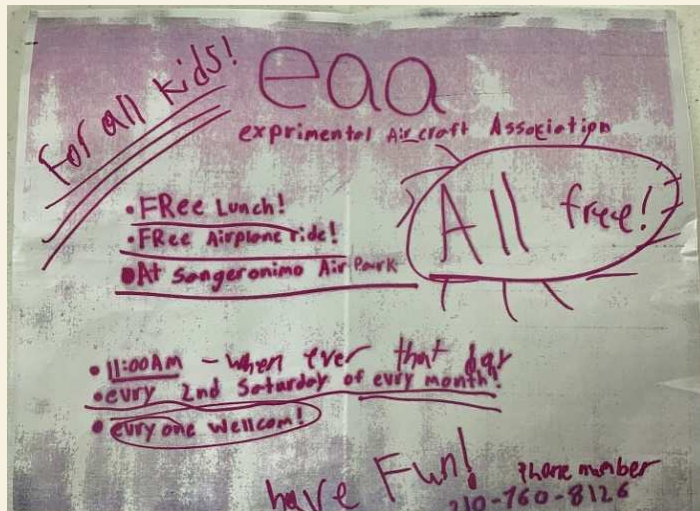 For all kids!
eaa
exprimental Aircraft Association
All free!
• FRee Lunch!
• FRee Airplane ride!
• At Sangeronimo Air Park
• 11:00AM – when ever that day
• evury 2nd Saturday of evury month!
• evury one wellcom!
have Fun!
Phone number
210-760-8126